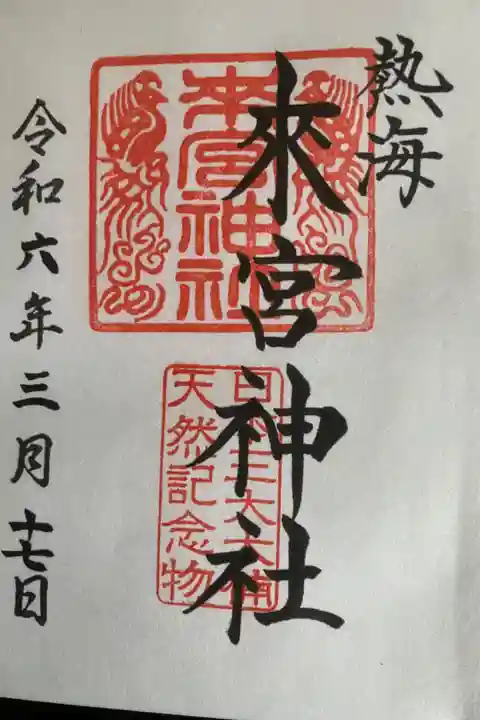 熱海
來宮神社
来宮神社
日本三大大楠
天然記念物
令和六年三月十七日